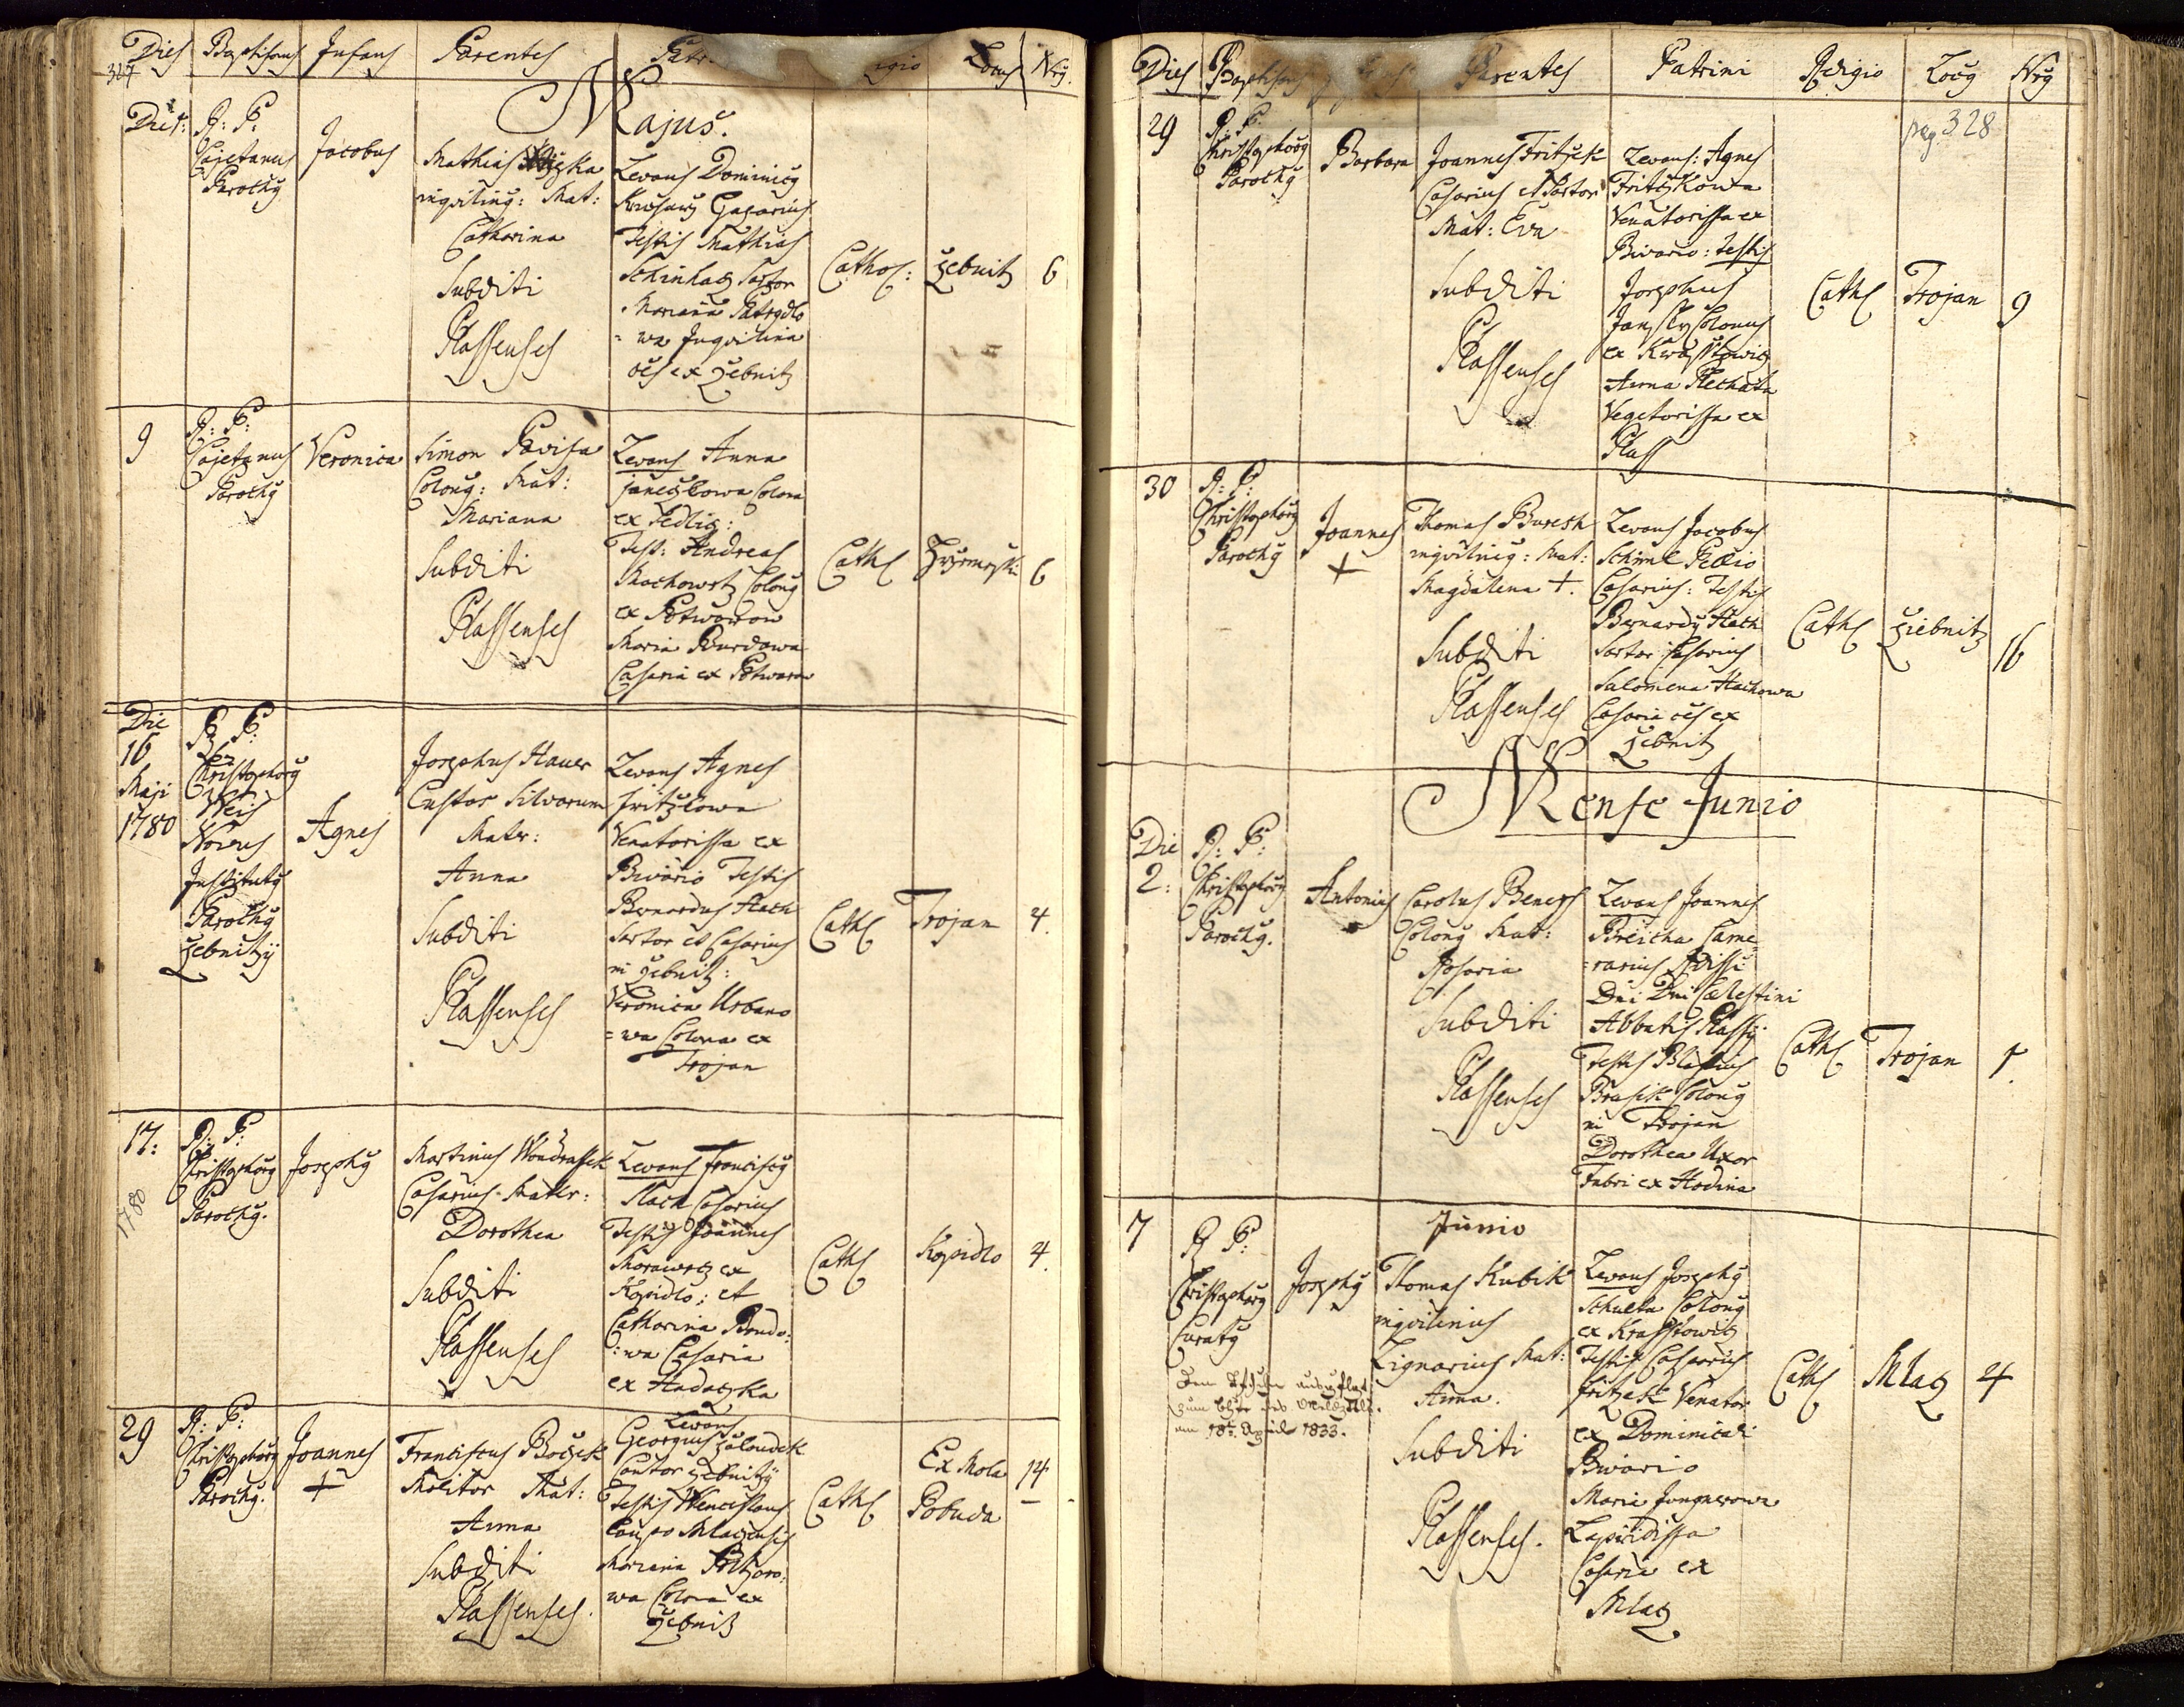 Dies Baptisans Infans Parentes Locus Nrg
327
Majus.
Die 1:
R: P:
Cajetanus
Parochg
Jacobus
Mathias
inqviling: Mat:
Catharina
Subditi
Plassenses
Levans Dominicg
Testis Mathias
Schinhaz Sartor
Mariana
= wa Inqvilina
oēs ex Zebnitz
Cathol:
Zebnitz
6
9
R: P:
Cajetanus
Parochg
Veronica
Simon Pavisa
Colong: Mat:
Mariana
Subditi
Plassenses
Levans Anna
Colona
ex Sedlig:
Test: Andreas
Machowetz Colong
ex Potworow
Maria Burdowa
Casaria ex Potworow
Cath
6
Die
16
Maji
1780
R: P:
Christophorg
Weis
Novus
Institutg
Parochg
Zebnitzij
Agnes
Josephus Hauer
Custos Silvarum
Mater:
Anna
Subditi
Plassenses
Levans Agnes
Fritzkowa
Venatorissa ex
Bivario Testis
Bernardus Hach
Sartor et Casarius
in Zebnitz:
Veronica Urbano
= wa Colona ex
Trojan
Cath
Trojan
4.
17:
1780
R: P:
Christophorg
Parochg.
Josephg
Martinus Wondrassek
Casarius Mater:
Dorothea
Subditi
Plassenses
Levans Franciscg
Hach Casarius
Testis Joannes
Morawetz ex
Kopidlo; et
Catharina Brudo:
: wa Casaria
ex Hadatzka
Cath
Kopidlo
4.
29
R: P:
Christophorg
Parochg.
Joannes
+
Franciscus Bočzek
Molitor Mat:
Anna
Subditi
Plassenses.
Levans
Georgius Žaloudek
Cantor Zebnitzij
Testis Wenceslaus
Mariana
wa Colona ex
Zebnitz
Cath
Ex Mola
Pobuda
14
Dies Parentes Patrini Religio Locg Nrg
pag. 328
29
R: P:
Christophorg
Parochg
Barbara
Joannes Fritzek
Casarius et Sartor
Mat: Eva
Subditi
Plassenses
Levans: Agnes
Fritzkowa
Venatorissa ex
Bivario: Testis
Josephus
Jansky Colonus
ex
Anna Plechata
Vegetorissa ex
Plass
Cath
Trojan
9
30
R: P:
Christophorg
Parochg
Joannes
+
Thomas Buresh
inqvilinig: Mat:
Magdalena +.
Subditi
Plassenses
Levans Jacobus
Schiml Pellio
Casarius: Testis
Bernardg Hach
Sartor Casarius
Salomena Hachowa
Casaria oēs ex
Zebnitz
Cath
Ziebnitz
16
Mense Junio
Die
2:
R: P:
Christophorg
Parochg.
Antonius
Carolus Benesh
Colong Mat:
Rosaria
Subditi
Plassenses
Levans Joannes
Breicha Came=
=rarius Rdissi
Dni Dni Cælestini
Abbatis Plassij
Testis Blasius
Brasik Colong
in Trojan
Dorothea Uxor
Fabri ex Hodina
Cath
Trojan
1
7
Junio
R: P:
Christophorg
Curatg
Josephg
Thomas Kubik
inqvilinius
Lignarius Mat:
Anna.
Subditi
Plassenses.
Levans Josephg
Schulta Colong
ex Krassowitz
Testis Casparus
Fritzek Venator
ex Dominicali
Bivario
Maria Jungnerowa
Lapicidissa
Casaria ex
Mlatz
Cath
Mlatz
4
18t. April 1833.